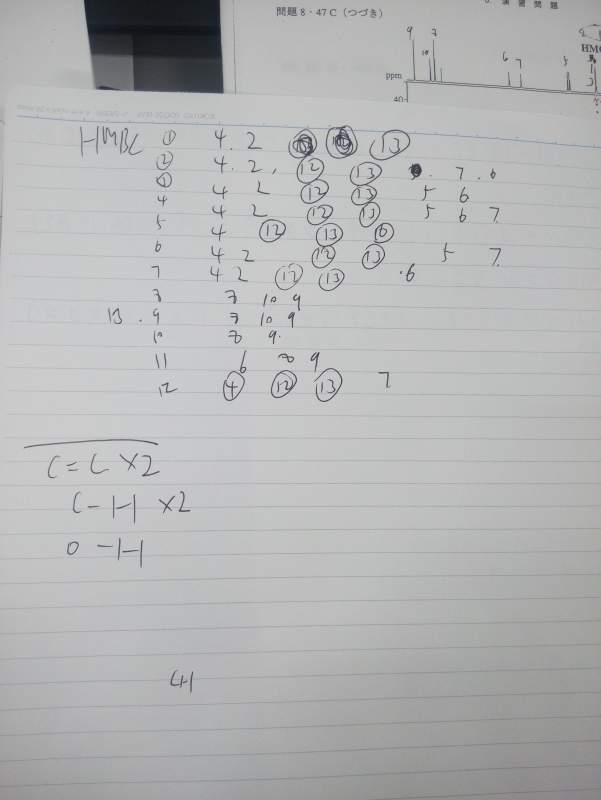 6. 演習問題
問題 8・47 C (つづき)
9 7
10
6 7 5
HMQ
ppm
40
HMBC ① 4. 2 13
② 4. 2, 12 13 7. 6
③ 4 2 12 13 5 6
4 4 2 12 13 5 6 7
5 4 12 13 6
6 4 2 12 13 5 7
7 4 2 12 13 6
7 10 9
13. 9 7 10 9
10 9.
11 6 9
12 4 12 13 7
C=C ×2
C-H ×2
O-H
CH